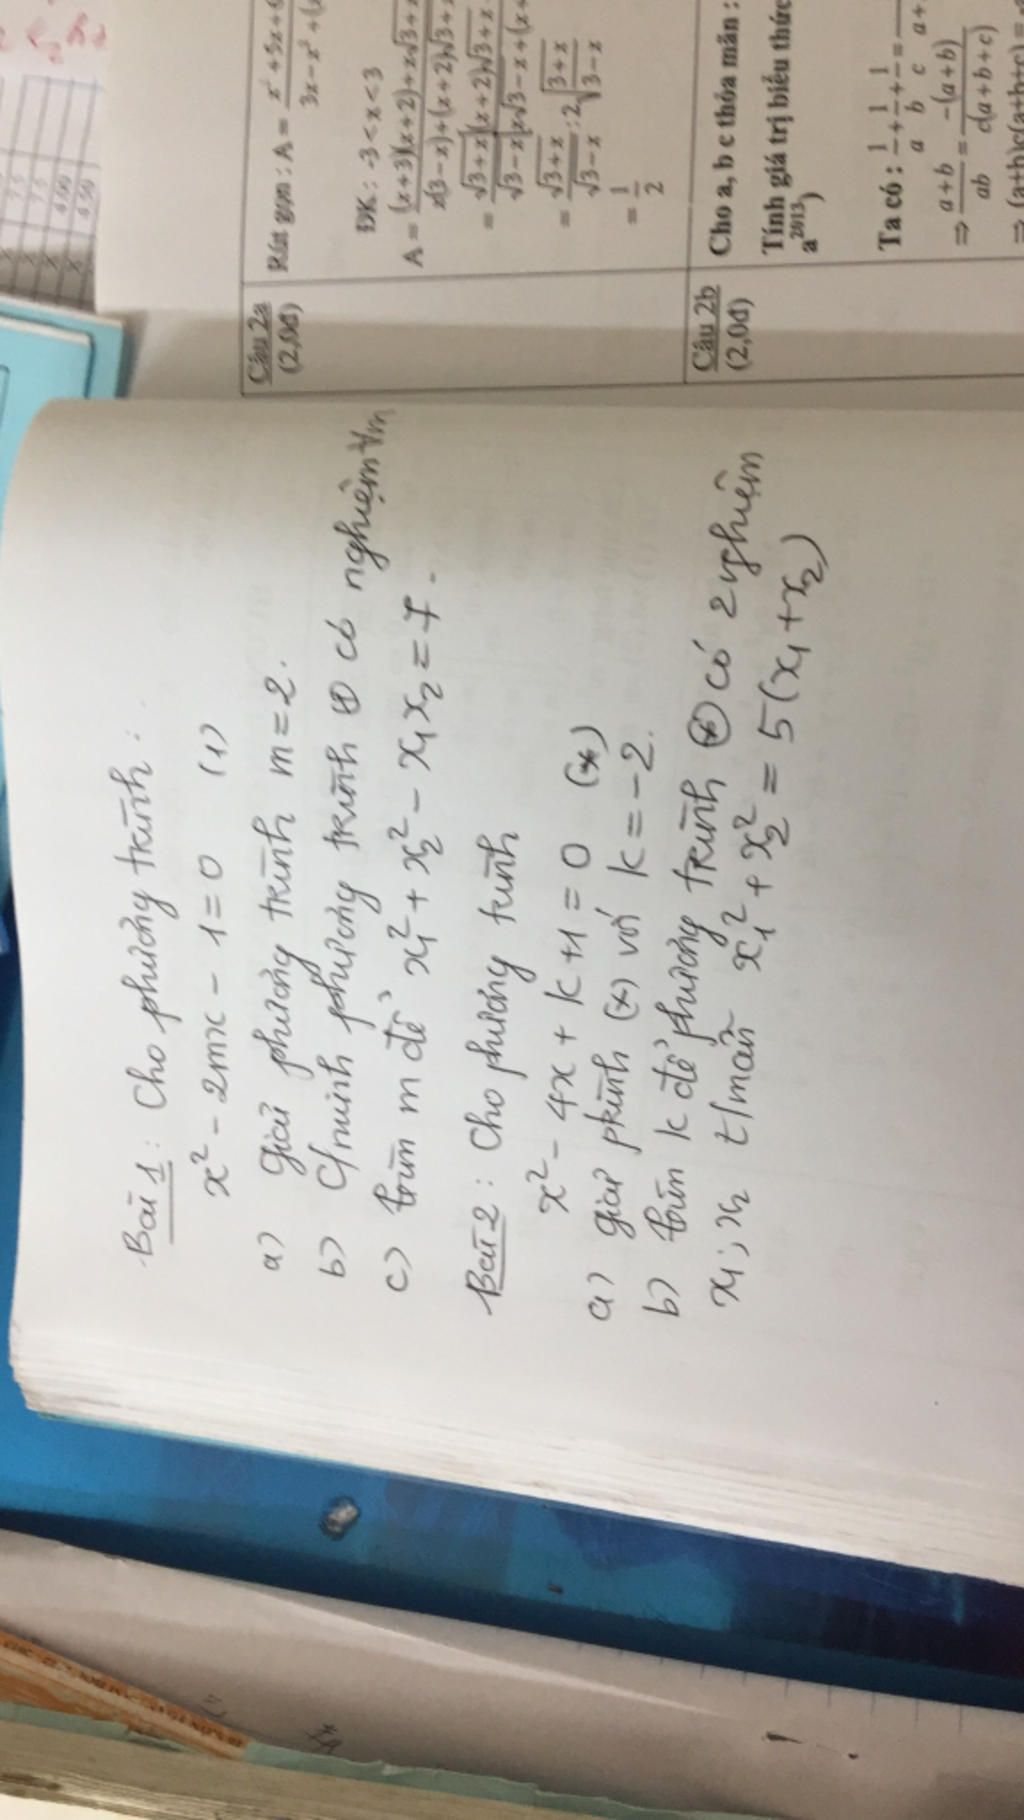 Bài 1: Cho phương trình:
x² - 2mx - 1 = 0 (1)
a) giải phương trình m = 2.
b) C/minh phương trình ① có nghiệm ∀m
c) tìm m để x₁² + x₂² - x₁x₂ = 7.
Bài 2: Cho phương trình
x² - 4x + k + 1 = 0 (*)
a) giải ptrình (*) với k = -2.
b) tìm k để phương trình (*) có 2 nghiệm
x₁; x₂ t/mãn x₁² + x₂² = 5(x₁ + x₂)
Câu 2a
(2,0đ)
Rút gọn : A =
ĐK : -3 < x < 3
A = (x+3)(x+2)+x√3+x
x(3-x)+(x+2)√3+x
= √3+x(x+2)√3+x
√3-x(x√3-x+(x+
= √3+x / √3-x : 2√3+x / √3-x
= 1/2
Câu 2b
(2,0đ)
Cho a, b c thỏa mãn :
Tính giá trị biểu thức
a²⁰¹³)
Ta có : 1/a + 1/b + 1/c =
⇒ a+b / ab = -(a+b) / c(a+b+c)
⇒ (a+b)c(a+b+c) =